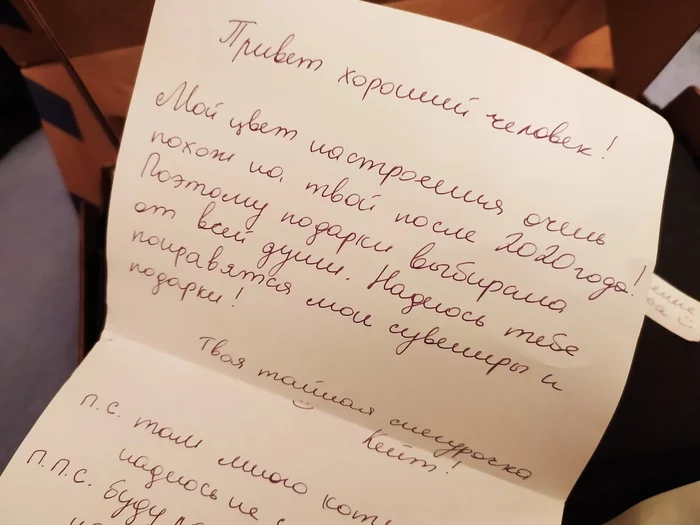 Привет хороший человек!
Мой цвет настроения очень
похож на твой после 2020 года!
Поэтому подарки выбирала
от всей души. Надеюсь тебе
понравятся мои сувениры и
подарки!
Твоя тайная снегурочка
Кейт!
П.С. там много
надеюсь не
П.П.С. Буду